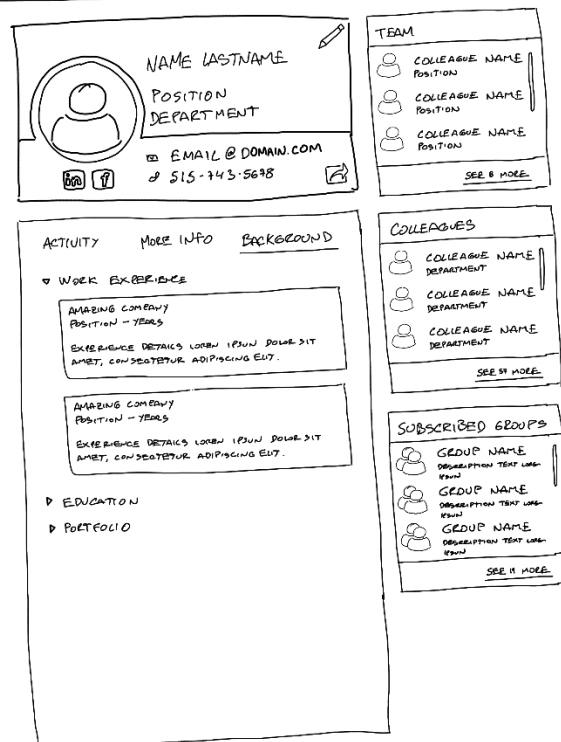 NAME LASTNAME
POSITION
DEPARTMENT
EMAIL@DOMAIN.COM
515-743-5678
in f
ACTIVITY MORE INFO BACKGROUND
WORK EXPERIENCE
AMAZING COMPANY
POSITION - YEARS
EXPERIENCE DETAILS LOREN IPSUN DOLOR SIT
AMET, CONSECTETUR ADIPISCING ELIT.
AMAZING COMPANY
POSITION - YEARS
EXPERIENCE DETAILS LOREN IPSUN DOLOR SIT
AMET, CONSECTETUR ADIPISCING ELIT.
EDUCATION
PORTFOLIO
TEAM
COLLEAGUE NAME
POSITION
COLLEAGUE NAME
POSITION
COLLEAGUE NAME
POSITION
SEE 8 MORE
COLLEAGUES
COLLEAGUE NAME
DEPARTMENT
COLLEAGUE NAME
DEPARTMENT
COLLEAGUE NAME
DEPARTMENT
SEE 54 MORE
SUBSCRIBED GROUPS
GROUP NAME
DESCRIPTION TEXT
IPSUN
GROUP NAME
DESCRIPTION TEXT
IPSUN
GROUP NAME
DESCRIPTION TEXT
IPSUN
SEE 11 MORE